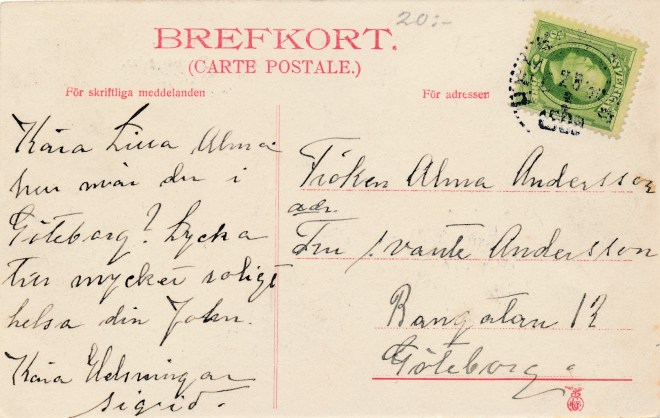 20:-
BREFKORT.
(CARTE POSTALE.)
För skriftliga meddelanden
För adressen
SVERIGE
Kära Lilla Alma
hur mår du i
Göteborg? Lycka
till mycket roligt
helsa din John.
Kära Helsningar
Sigrid.
Fröken Alma Andersson
adr.
Fru Svante Andersson
Bangatan 12
Göteborg.